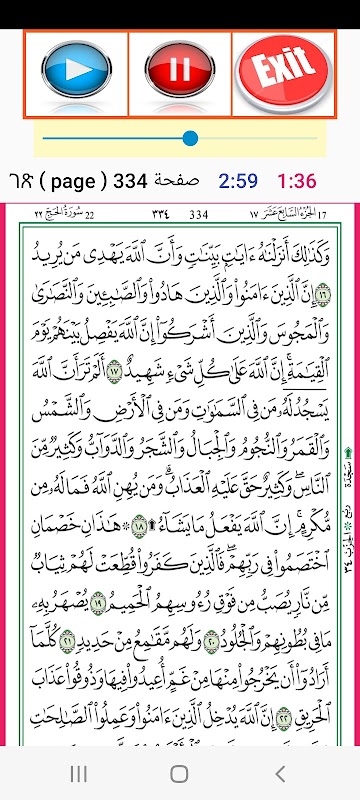 Exit
ገጽ ( page ) 334 صفحة 2:59 1:36
22 سُورَةُ الحَجّ ٢٢ ٣٣٤ 334 الجُزْءُ السَّابِعَ عَشَرَ ١٧ 17
وَكَذَٰلِكَ أَنزَلْنَٰهُ ءَايَٰتٍۭ بَيِّنَٰتٍ وَأَنَّ ٱللَّهَ يَهْدِى مَن يُرِيدُ
١٦ إِنَّ ٱلَّذِينَ ءَامَنُوا۟ وَٱلَّذِينَ هَادُوا۟ وَٱلصَّٰبِـِٔينَ وَٱلنَّصَٰرَىٰ
وَٱلْمَجُوسَ وَٱلَّذِينَ أَشْرَكُوٓا۟ إِنَّ ٱللَّهَ يَفْصِلُ بَيْنَهُمْ يَوْمَ
ٱلْقِيَٰمَةِ ۚ إِنَّ ٱللَّهَ عَلَىٰ كُلِّ شَىْءٍ شَهِيدٌ ١٧ أَلَمْ تَرَ أَنَّ ٱللَّهَ
يَسْجُدُ لَهُۥ مَن فِى ٱلسَّمَٰوَٰتِ وَمَن فِى ٱلْأَرْضِ وَٱلشَّمْسُ
وَٱلْقَمَرُ وَٱلنُّجُومُ وَٱلْجِبَالُ وَٱلشَّجَرُ وَٱلدَّوَآبُّ وَكَثِيرٌ مِّنَ
ٱلنَّاسِ ۖ وَكَثِيرٌ حَقَّ عَلَيْهِ ٱلْعَذَابُ ۗ وَمَن يُهِنِ ٱللَّهُ فَمَا لَهُۥ مِن
مُّكْرِمٍ ۚ إِنَّ ٱللَّهَ يَفْعَلُ مَا يَشَآءُ ۩ ١٨ ۞ هَٰذَانِ خَصْمَانِ
ٱخْتَصَمُوا۟ فِى رَبِّهِمْ ۖ فَٱلَّذِينَ كَفَرُوا۟ قُطِّعَتْ لَهُمْ ثِيَابٌ
مِّن نَّارٍ يُصَبُّ مِن فَوْقِ رُءُوسِهِمُ ٱلْحَمِيمُ ١٩ يُصْهَرُ بِهِۦ
مَا فِى بُطُونِهِمْ وَٱلْجُلُودُ ٢٠ وَلَهُم مَّقَٰمِعُ مِنْ حَدِيدٍ ٢١ كُلَّمَآ
أَرَادُوٓا۟ أَن يَخْرُجُوا۟ مِنْهَا مِنْ غَمٍّ أُعِيدُوا۟ فِيهَا وَذُوقُوا۟ عَذَابَ
ٱلْحَرِيقِ ٢٢ إِنَّ ٱللَّهَ يُدْخِلُ ٱلَّذِينَ ءَامَنُوا۟ وَعَمِلُوا۟ ٱلصَّٰلِحَٰتِ
۩ سَجْدَة
رُبع الحِزْب ٣٤